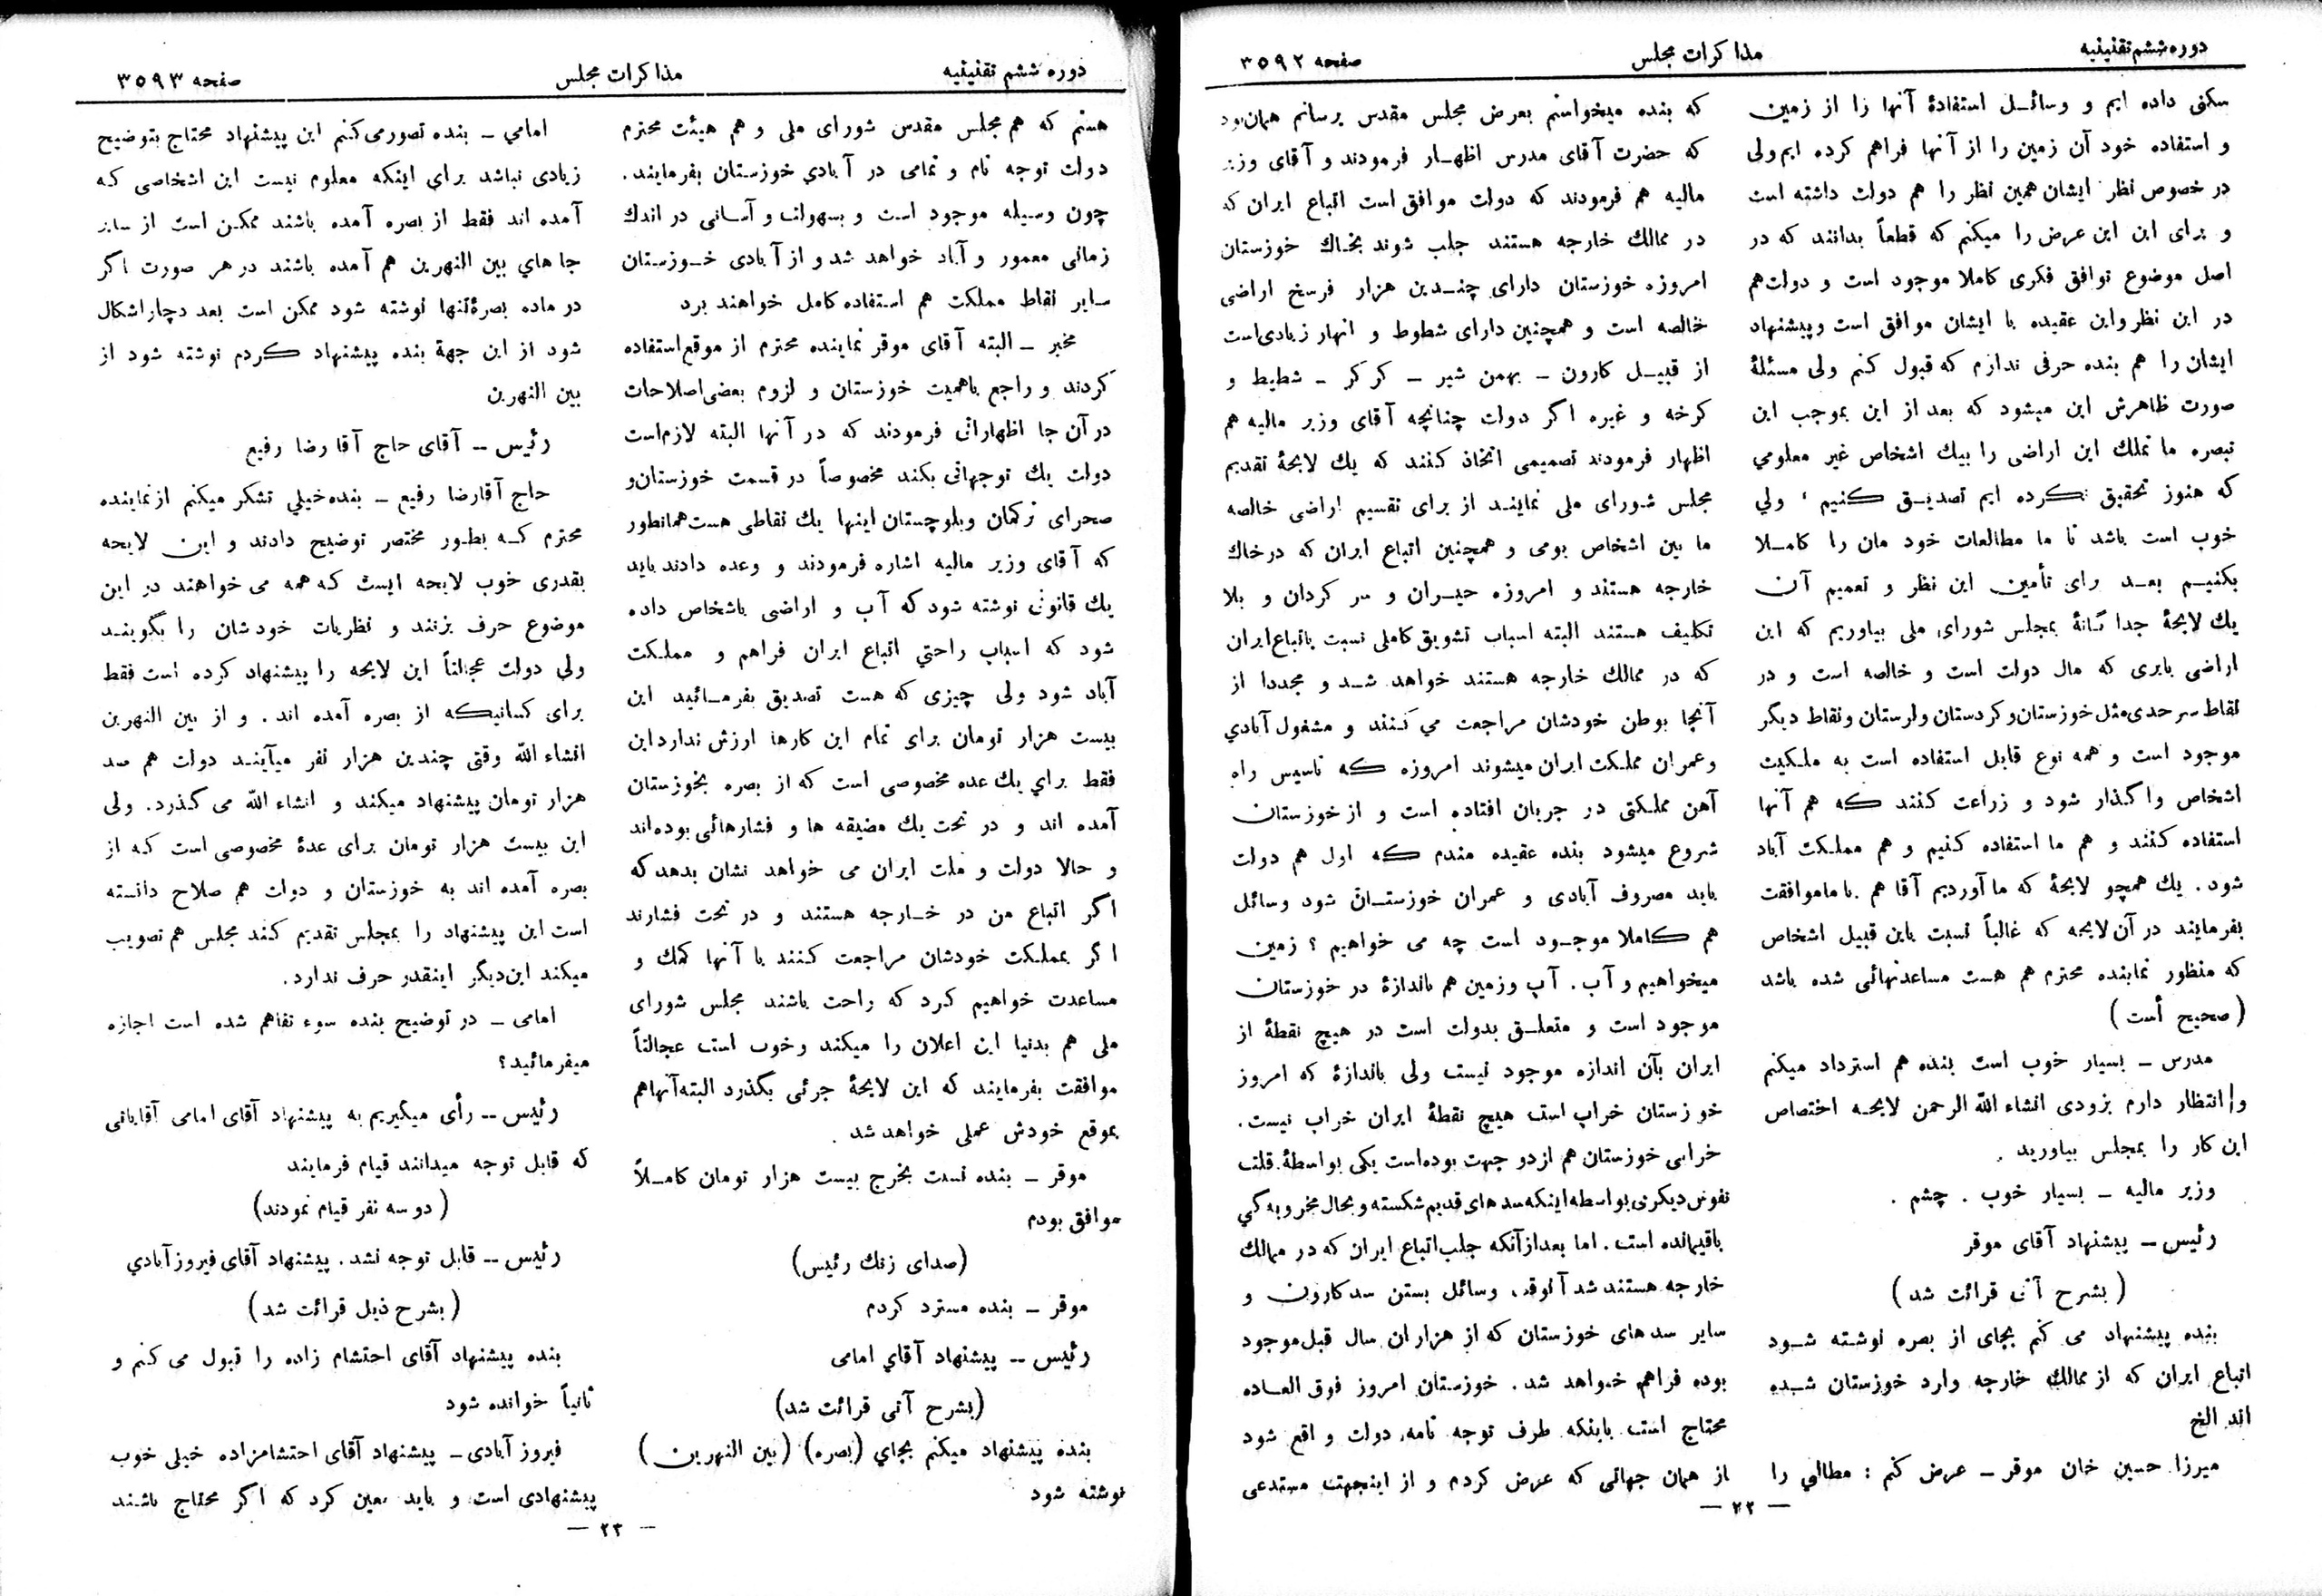 دوره ششم تقنینیه
مذاکرات مجلس
صفحه ۳۵۹۲
سکنی داده ایم و وسائل استفادهٔ آنها را از زمین
و استفاده خود آن زمین را از آنها فراهم کرده ایم ولی
در خصوص نظر ایشان همین نظر را هم دولت داشته است
و برای این این عرض را میکنم که قطعاً بدانند که در
اصل موضوع توافق فکری کاملا موجود است و دولت هم
در این نظر و این عقیده با ایشان موافق است و پیشنهاد
ایشان را هم بنده حرفی ندارم که قبول کنم ولی مسئلهٔ
صورت ظاهرش این میشود که بعد از این بموجب این
تبصره ما تملك این اراضی را بیك اشخاص غیر معلومي
که هنوز تحقیق نکرده ایم تصدیق کنیم ، ولي
خوب است باشد تا ما مطالعات خود مان را کاملا
بکنیم بعد رای تأمین این نظر و تعمیم آن
یك لایحهٔ جدا گانهٔ بمجلس شورای ملی بیاوریم که این
اراضی بایری که مال دولت است و خالصه است و در
نقاط سرحدی مثل خوزستان و کردستان و لرستان و نقاط دیگر
موجود است و همه نوع قابل استفاده است به ملکیت
اشخاص واگذار شود و زراعت کنند که هم آنها
استفاده کنند و هم ما استفاده کنیم و هم مملکت آباد
شود . یك همچو لایحهٔ که ما آوردیم آقا هم با ما موافقت
بفرمایند در آن لایحه که غالباً نسبت باین قبیل اشخاص
که منظور نماینده محترم هم هست مساعدتهائی شده باشد
(صحیح أست)
مدرس ــ بسیار خوب است بنده هم استرداد میکنم
و انتظار دارم بزودی انشاء الله الرحمن لایحه اختصاص
این کار را بمجلس بیاورید .
وزیر مالیه ــ بسیار خوب . چشم .
رئیس ــ پیشنهاد آقای موقر
(بشرح آتی قرائت شد)
بنده پیشنهاد می کنم بجای از بصره نوشته شود
اتباع ایران که از ممالك خارجه وارد خوزستان شده
اند الخ
میرزا حسین خان موقر ــ عرض کنم : مطالبي را
که بنده میخواستم بعرض مجلس مقدس برسانم همان بود
که حضرت آقای مدرس اظهار فرمودند و آقای وزیر
مالیه هم فرمودند که دولت موافق است اتباع ایران که
در ممالك خارجه هستند جلب شوند بخاك خوزستان
امروزه خوزستان دارای چندین هزار فرسخ اراضی
خالصه است و همچنین دارای شطوط و انهار زیادی است
از قبیل کارون ــ بهمن شیر ــ کرکر ــ شطیط و
کرخه و غیره اگر دولت چنانچه آقای وزیر مالیه هم
اظهار فرمودند تصمیمی اتخاذ کنند که یك لایحهٔ تقدیم
مجلس شورای ملی نمایند از برای تقسیم اراضی خالصه
ما بین اشخاص بومی و همچنین اتباع ایران که در خاك
خارجه هستند و امروزه حیران و سر کردان و بلا
تکلیف هستند البته اسباب تشویق کاملی نسبت باتباع ایران
که در ممالك خارجه هستند خواهد شد و مجددا از
آنجا بوطن خودشان مراجعت می کنند و مشغول آبادي
و عمران مملکت ایران میشوند امروزه که تاسیس راه
آهن مملکتی در جریان افتاده است و از خوزستان
شروع میشود بنده عقیده مندم که اول هم دولت
باید مصروف آبادی و عمران خوزستان شود وسائل
هم کاملا موجود است چه می خواهیم ؟ زمین
میخواهیم و آب . آب و زمین هم باندازهٔ در خوزستان
موجود است و متعلق بدولت است در هیچ نقطهٔ از
ایران بآن اندازه موجود نیست ولی باندازهٔ که امروز
خوزستان خراب است هیچ نقطهٔ ایران خراب نیست .
خرابی خوزستان هم از دو جهت بوده است یکی بواسطهٔ قلت
نفوس دیگری بواسطه اینکه سدهای قدیم شکسته و بحال مخروبه گي
باقیمانده است . اما بعد از آنکه جلب اتباع ایران که در ممالك
خارجه هستند شد آنوقت وسائل بستن سد کارون و
سایر سدهای خوزستان که از هزاران سال قبل موجود
بوده فراهم خواهد شد . خوزستان امروز فوق العاده
محتاج است باینکه طرف توجه تامه دولت واقع شود
از همان جهاتی که عرض کردم و از اینجهت مستدعی
ــ ۲۲ ــ
دوره ششم تقنینیه
مذاکرات مجلس
صفحه ۳۵۹۳
هستم که هم مجلس مقدس شورای ملی و هم هیئت محترم
دولت توجه تام و تمامی در آبادي خوزستان بفرمایند .
چون وسیله موجود است و بسهولت و آسانی در اندك
زمانی معمور و آباد خواهد شد و از آبادی خوزستان
سایر نقاط مملکت هم استفاده کامل خواهند برد
مخبر ــ البته آقای موقر نماینده محترم از موقع استفاده
کردند و راجع باهمیت خوزستان و لزوم بعضی اصلاحات
در آن جا اظهاراتی فرمودند که در آنها البته لازم است
دولت یك توجهاتی بکند مخصوصاً در قسمت خوزستان و
صحرای ترکمان و بلوچستان اینها یك نقاطی هست همانطور
که آقای وزیر مالیه اشاره فرمودند و وعده دادند باید
یك قانونی نوشته شود که آب و اراضی باشخاص داده
شود که اسباب راحتي اتباع ایران فراهم و مملکت
آباد شود ولی چیزی که هست تصدیق بفرمائید این
بیست هزار تومان برای تمام این کارها ارزش ندارد این
فقط براي یك عده مخصوصی است که از بصره بخوزستان
آمده اند و در تحت یك مضیقه ها و فشارهائی بوده اند
و حالا دولت و ملت ایران می خواهد نشان بدهد که
اگر اتباع من در خارجه هستند و در تحت فشارند
اگر بمملکت خودشان مراجعت کنند با آنها کمك و
مساعدت خواهیم کرد که راحت باشند مجلس شورای
ملی هم بدنیا این اعلان را میکند و خوب است عجالتاً
موافقت بفرمایند که این لایحهٔ جرئی بگذرد البته آنها هم
بموقع خودش عملی خواهد شد .
موقر ــ بنده نسبت بخرج بیست هزار تومان کاملاً
موافق بودم
(صدای زنك رئیس)
موقر ــ بنده مسترد کردم
رئیس ــ پیشنهاد آقاي امامی
(بشرح آتی قرائت شد)
بنده پیشنهاد میکنم بجاي (بصره) (بین النهرین)
نوشته شود
امامي ــ بنده تصور می کنم این پیشنهاد محتاج بتوضیح
زیادی نباشد براي اینکه معلوم نیست این اشخاصی که
آمده اند فقط از بصره آمده باشند ممکن است از سایر
جاهاي بین النهرین هم آمده باشند در هر صورت اگر
در ماده بصرهٔ تنها نوشته شود ممکن است بعد دچار اشکال
شود از این جهة بنده پیشنهاد کردم نوشته شود از
بین النهرین
رئیس ــ آقای حاج آقا رضا رفیع
حاج آقا رضا رفیع ــ بنده خیلي تشکر میکنم از نماینده
محترم که بطور مختصر توضیح دادند و این لایحه
بقدری خوب لایحه ایست که همه می خواهند در این
موضوع حرف بزنند و نظریات خودشان را بگویند
ولي دولت عجالتاً این لایحه را پیشنهاد کرده است فقط
برای کسانیکه از بصره آمده اند . و از بین النهرین
انشاء الله وقتی چندین هزار نفر میآیند دولت هم صد
هزار تومان پیشنهاد میکند و انشاء الله می گذرد . ولی
این بیست هزار تومان برای عدهٔ مخصوصی است که از
بصره آمده اند به خوزستان و دولت هم صلاح دانسته
است این پیشنهاد را بمجلس تقدیم کند مجلس هم تصویب
میکند این دیگر اینقدر حرف ندارد .
امامی ــ در توضیح بنده سوء تفاهم شده است اجازه
میفرمائید؟
رئیس ــ رأی میگیریم به پیشنهاد آقای امامی آقایانی
که قابل توجه میدانند قیام فرمایند
(دو سه نفر قیام نمودند)
رئیس ــ قابل توجه نشد . پیشنهاد آقای فیروز آبادي
(بشرح ذیل قرائت شد)
بنده پیشنهاد آقای احتشام زاده را قبول می کنم و
ثانیاً خوانده شود
فیروز آبادی ــ پیشنهاد آقای احتشامزاده خیلی خوب
پیشنهادی است و باید معین کرد که اگر محتاج باشند
ــ ۲۳ ــ